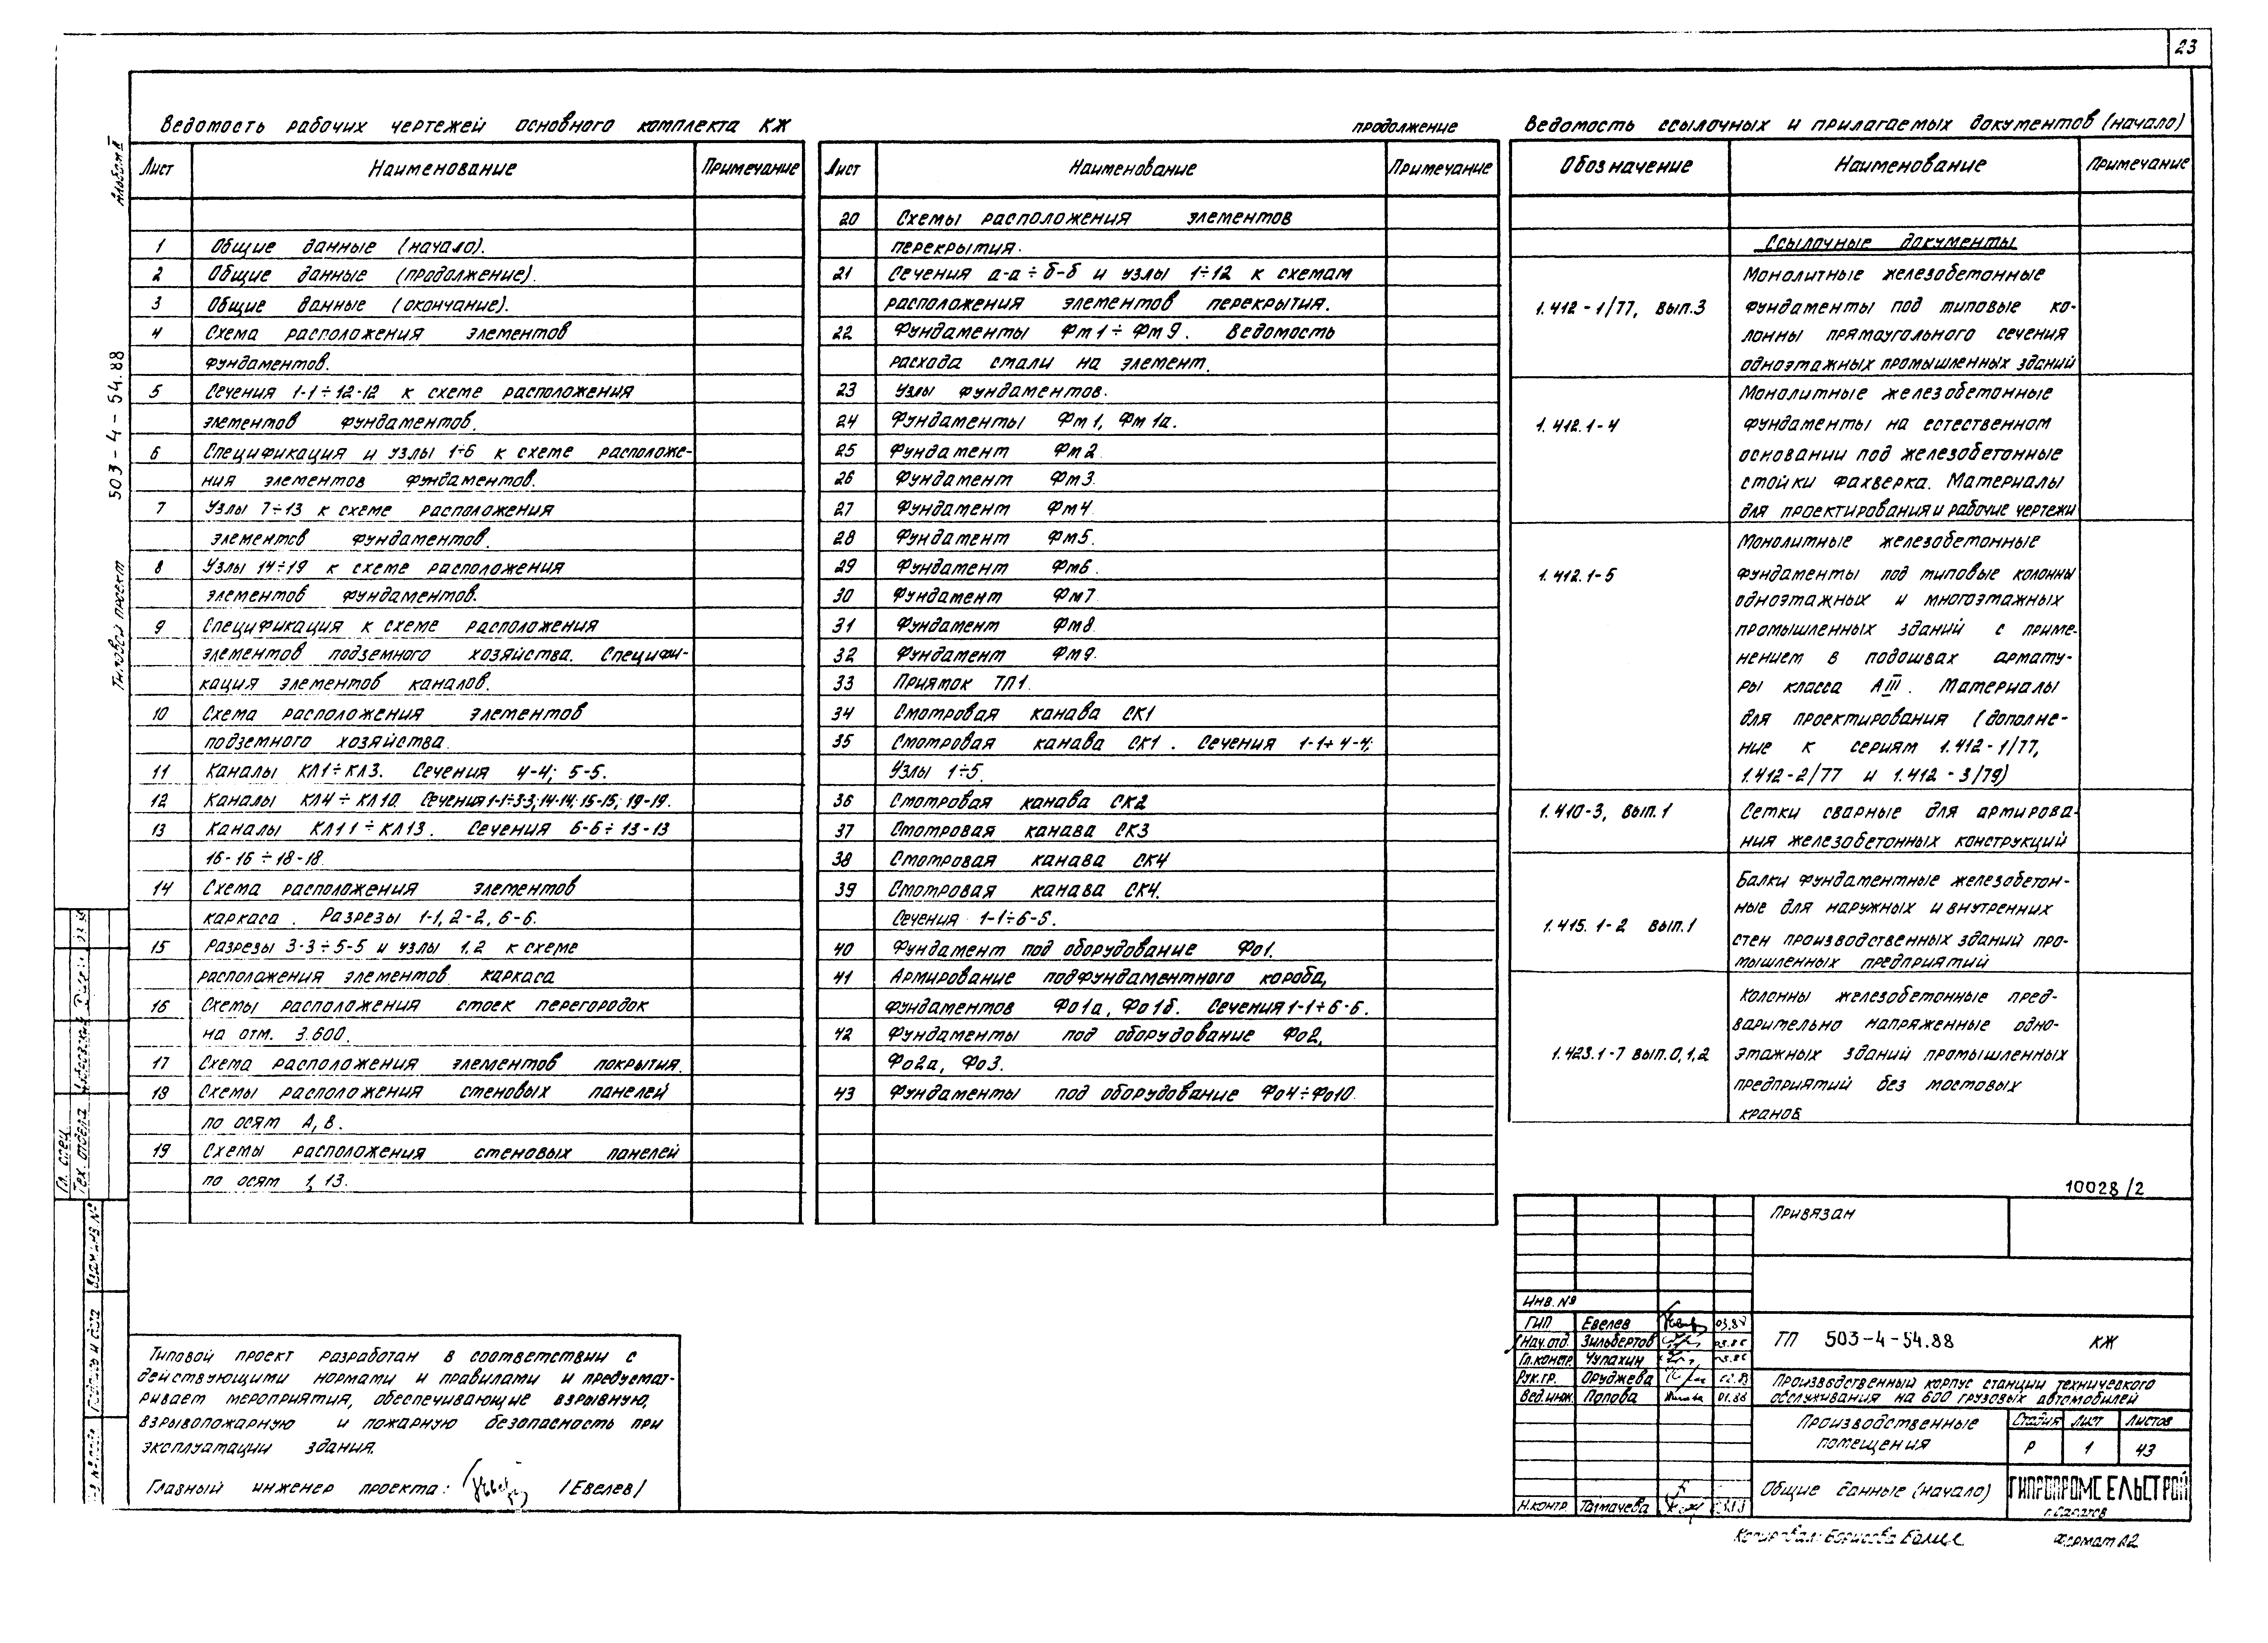 23
Альбом II
Типовой проект 503-4-54.88
Ведомость рабочих чертежей основного комплекта КЖ
Лист Наименование Примечание
1 Общие данные (начало).
2 Общие данные (продолжение).
3 Общие данные (окончание).
4 Схема расположения элементов
фундаментов.
5 Сечения 1-1÷12-12 к схеме расположения
элементов фундаментов.
6 Спецификация и узлы 1÷6 к схеме расположе-
ния элементов фундаментов.
7 Узлы 7÷13 к схеме расположения
элементов фундаментов.
8 Узлы 14÷19 к схеме расположения
элементов фундаментов.
9 Спецификация к схеме расположения
элементов подземного хозяйства. Специфи-
кация элементов каналов.
10 Схема расположения элементов
подземного хозяйства.
11 Каналы КЛ1÷КЛ3. Сечения 4-4; 5-5.
12 Каналы КЛ4÷КЛ10. Сечения 1-1÷3-3; 14-14; 15-15; 19-19.
13 Каналы КЛ11÷КЛ13. Сечения 6-6÷13-13
16-16÷18-18.
14 Схема расположения элементов
каркаса. Разрезы 1-1, 2-2, 6-6.
15 Разрезы 3-3÷5-5 и узлы 1.2 к схеме
расположения элементов каркаса
16 Схемы расположения стоек перегородок
на отм. 3.600.
17 Схема расположения элементов покрытия.
18 Схемы расположения стеновых панелей
по осям А, В.
19 Схемы расположения стеновых панелей
по осям 1, 13.
продолжение
Лист Наименование Примечание
20 Схемы расположения элементов
перекрытия.
21 Сечения а-а÷б-б и узлы 1÷12 к схемам
расположения элементов перекрытия.
22 Фундаменты Фм1÷Фм9. Ведомость
расхода стали на элемент.
23 Узлы фундаментов.
24 Фундаменты Фм1, Фм1а.
25 Фундамент Фм2
26 Фундамент Фм3.
27 Фундамент Фм4
28 Фундамент Фм5.
29 Фундамент Фм6.
30 Фундамент Фм7
31 Фундамент Фм8
32 Фундамент Фм9.
33 Приямок ТП1.
34 Смотровая канава СК1
35 Смотровая канава СК1. Сечения 1-1÷4-4;
Узлы 1÷5.
36 Смотровая канава СК2
37 Смотровая канава СК3
38 Смотровая канава СК4
39 Смотровая канава СК4.
Сечения 1-1÷6-6.
40 Фундамент под оборудование Фо1.
41 Армирование подфундаментного короба,
фундаментов Фо1а, Фо1б. Сечения 1-1÷6-6.
42 Фундаменты под оборудование Фо2,
Фо2а, Фо3.
43 Фундаменты под оборудование Фо4÷Фо10.
Ведомость ссылочных и прилагаемых документов (начало)
Обозначение Наименование Примечание
Ссылочные документы
1.412-1/77, вып.3 Монолитные железобетонные
фундаменты под типовые ко-
лонны прямоугольного сечения
одноэтажных промышленных зданий
1.412.1-4 Монолитные железобетонные
фундаменты на естественном
основании под железобетонные
стойки фахверка. Материалы
для проектирования и рабочие чертежи
1.412.1-5 Монолитные железобетонные
фундаменты под типовые колонны
одноэтажных и многоэтажных
промышленных зданий с приме-
нением в подошвах армату-
ры класса АIII. Материалы
для проектирования (дополне-
ние к сериям 1.412-1/77,
1.412-2/77 и 1.412-3/79)
1.410-3, вып.1 Сетки сварные для армирова-
ния железобетонных конструкций
1.415.1-2 вып.1 Балки фундаментные железобетон-
ные для наружных и внутренних
стен производственных зданий про-
мышленных предприятий
1.423.1-7 вып.0,1,2 Колонны железобетонные пред-
варительно напряженные одно-
этажных зданий промышленных
предприятий без мостовых
кранов
10028/2
Типовой проект разработан в соответствии с
действующими нормами и правилами и предусмат-
ривает мероприятия, обеспечивающие взрывную,
взрывопожарную и пожарную безопасность при
эксплуатации здания.
Главный инженер проекта: /Евелев/
Привязан
Инв. №
ГИП Евелев 03.88
Нач.отд. Зильбертов
Гл.констр. Чупахин
Рук.гр. Оруджева
Вед.инж. Попова 01.88
Н.контр. Толмачева
ТП 503-4-54.88 КЖ
Производственный корпус станции технического
обслуживания на 600 грузовых автомобилей
Производственные
помещения
Стадия Лист Листов
Р 1 43
Общие данные (начало)
ГИПРОПРОМСЕЛЬСТРОЙ
г.Саратов
Копировал: Борисова
Формат А2
Гл. спец.
Тех. отдела
Взам инв №
Подпись и дата